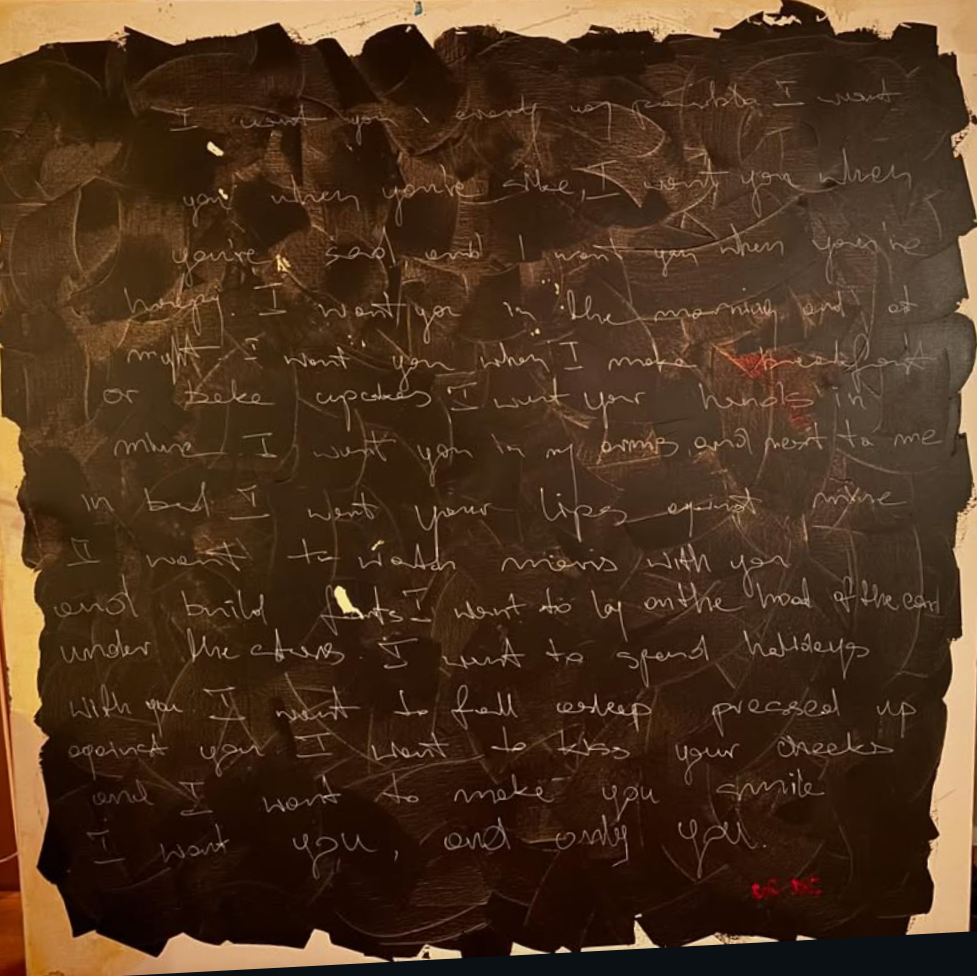 I want you in every way possible. I want
you when you're sike, I want you when
you're sad and I want you when you're
happy. I want you in the morning and at
night I want you when I make breakfast
or bake cupcakes I want your hands in
mine I want you in my arms, and next to me
in bed I want your lips against mine
I want to watch movis with you
and build forts I want to lay on the hood of the card
under the stars. I want to spend holidays
with you. I want to fall asleep pressed up
against you. I want to kiss your cheeks
and I want to make you smile
I want you, and only you.